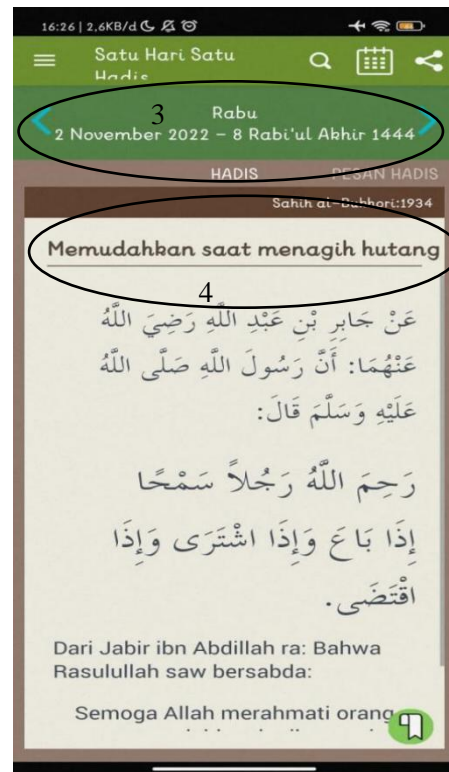 16:26 | 2,6KB/d
Satu Hari Satu
Hadis
3
Rabu
2 November 2022 – 8 Rabi'ul Akhir 1444
HADIS PESAN HADIS
Sahih al-Bukhori:1934
Memudahkan saat menagih hutang
4
عَنْ جَابِرِ بْنِ عَبْدِ اللَّهِ رَضِيَ اللَّهُ
عَنْهُمَا: أَنَّ رَسُولَ اللَّهِ صَلَّى اللَّهُ
عَلَيْهِ وَسَلَّمَ قَالَ:
رَحِمَ اللَّهُ رَجُلاً سَمْحًا
إِذَا بَاعَ وَإِذَا اشْتَرَى وَإِذَا
اقْتَضَى.
Dari Jabir ibn Abdillah ra: Bahwa
Rasulullah saw bersabda:
Semoga Allah merahmati orang